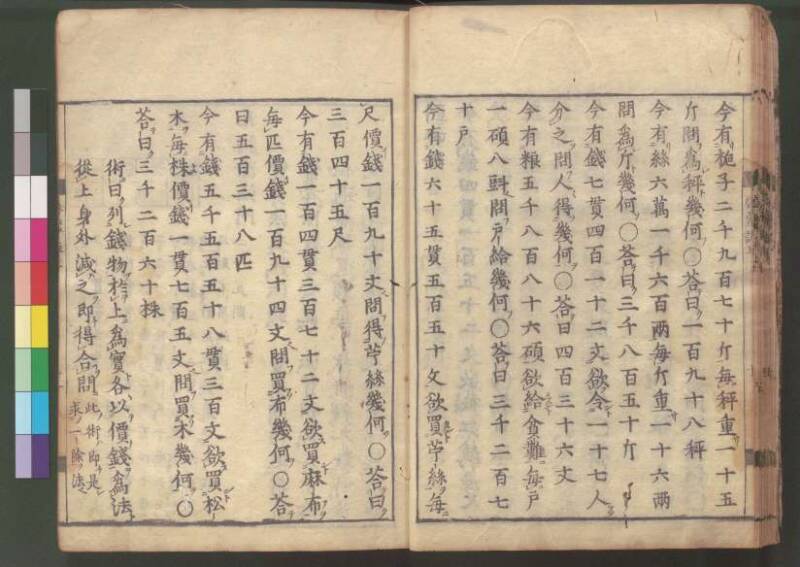 今有梔子二千九百七十斤每秤重一十五
斤問爲秤幾何〇荅曰一百九十八秤
今有絲六萬一千六百兩每斤重一十六兩
問爲斤幾何〇荅曰三千八百五十斤
今有錢七貫四百一十二文欲令一十七人
分之問人得幾何〇荅曰四百三十六文
今有粮五千八百八十六碩欲給貧難每戶
一碩八㪷問戶給幾何〇荅曰三千二百七
十戶
今有錢六十五貫五百五十文欲買苧絲每
尺價錢一百九十文問得苧絲幾何〇荅曰
三百四十五尺
今有錢一百四貫三百七十二文欲買麻布
每匹價錢一百九十四文問買布幾何〇荅
曰五百三十八匹
今有錢五千五百五十八貫三百文欲買松
木每株價錢一貫七百五文問買木幾何〇
荅曰三千二百六十株
術曰列錢物於上爲實各以價錢爲法
從上身外減之即得合問此術即是
乘一除法